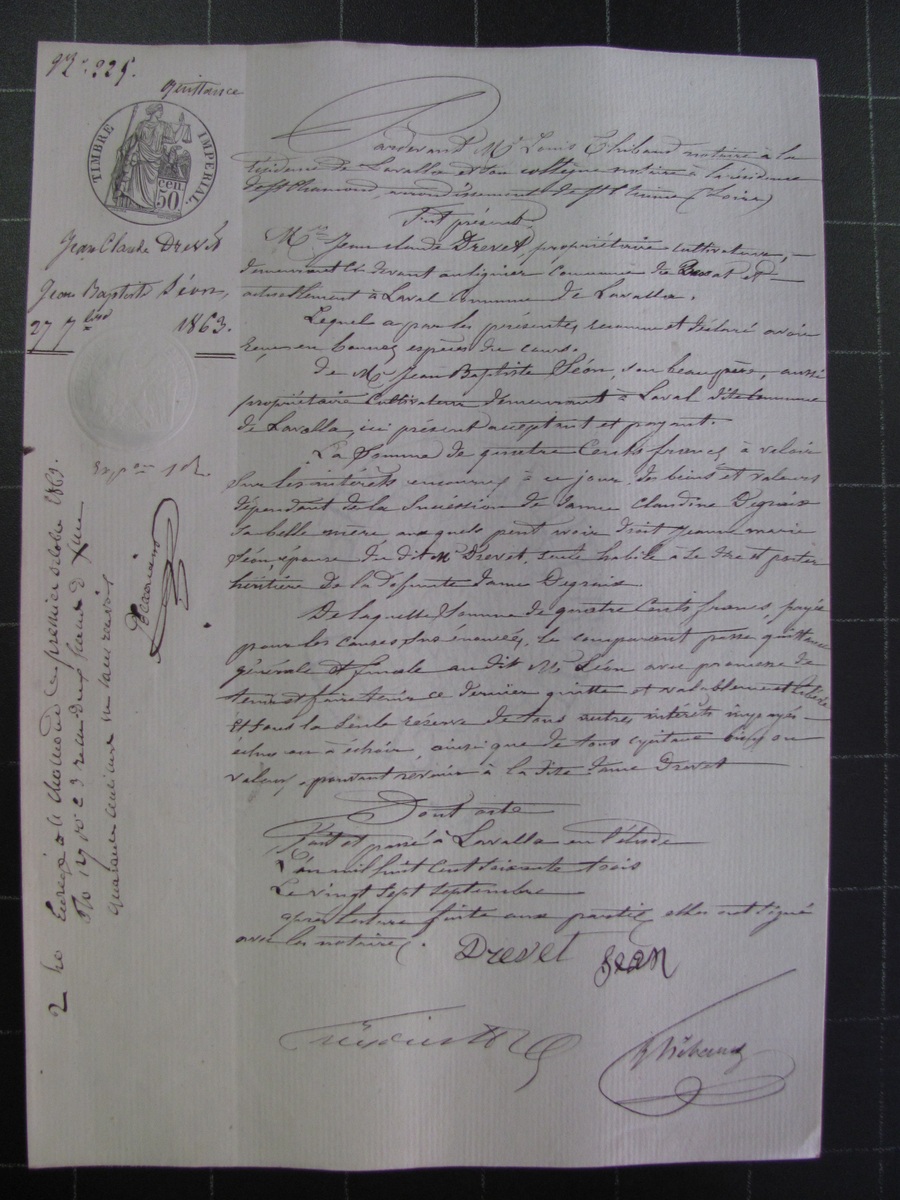 N°. 225.
Quittance
TIMBRE IMPÉRIAL
50 cen
Jean Claude Drevet
Jean Baptiste Séon
27 7bre 1863.
Pardevant Me Louis Thibaud notaire à la
résidence de Lavalla et son collègue notaire à la résidence
de St Chamond, arrondissement de St Etienne (Loire)
Fut présent
Mr. Jean claude Drevet, propriétaire cultivateur,
demeurant ci devant au commune de et
actuellement à Laval commune de Lavalla.
Lequel a par les présentes, reconnu et déclaré avoir
reçu en bonnes espèces du cours.
de Mr Jean Baptiste Séon, son beau père, aussi
propriétaire cultivateur demeurant à Laval dite commune
de Lavalla, ici présent acceptant et payant.
La Somme de quatre Cents francs, à valoir
Sur les intérêts encourus à ce jour, des biens et valeurs
dépendant de la Succession de dame Claudine Degraix
sa belle mère, auxquels peut avoir droit Jeanne marie
Séon, épouse du dit Mr Drevet, seule habile à se dire et porter
héritière de la défunte dame Degraix.
De laquelle Somme de quatre Cents francs, payée
pour les causes sus énoncées, le comparant passe quittance
générale et finale au dit Mr Séon avec promesse de
tenir et faire tenir ce dernier quitte et valablement libéré
et sous la seule réserve de tous autres intérêts impayés
échus ou à échoir, ainsi que de tous capitaux biens ou
valeurs, pouvant revenir à la dite dame Drevet
Dont acte
Fait et passé à Lavalla en l'étude
L'an mil huit cent soixante trois
Le vingt sept septembre
après lecture faite aux parties, elles ont signé
avec les notaires.
Drevet Séon
Thibaud
Enregé à St Chamond le premier octobre 1863.